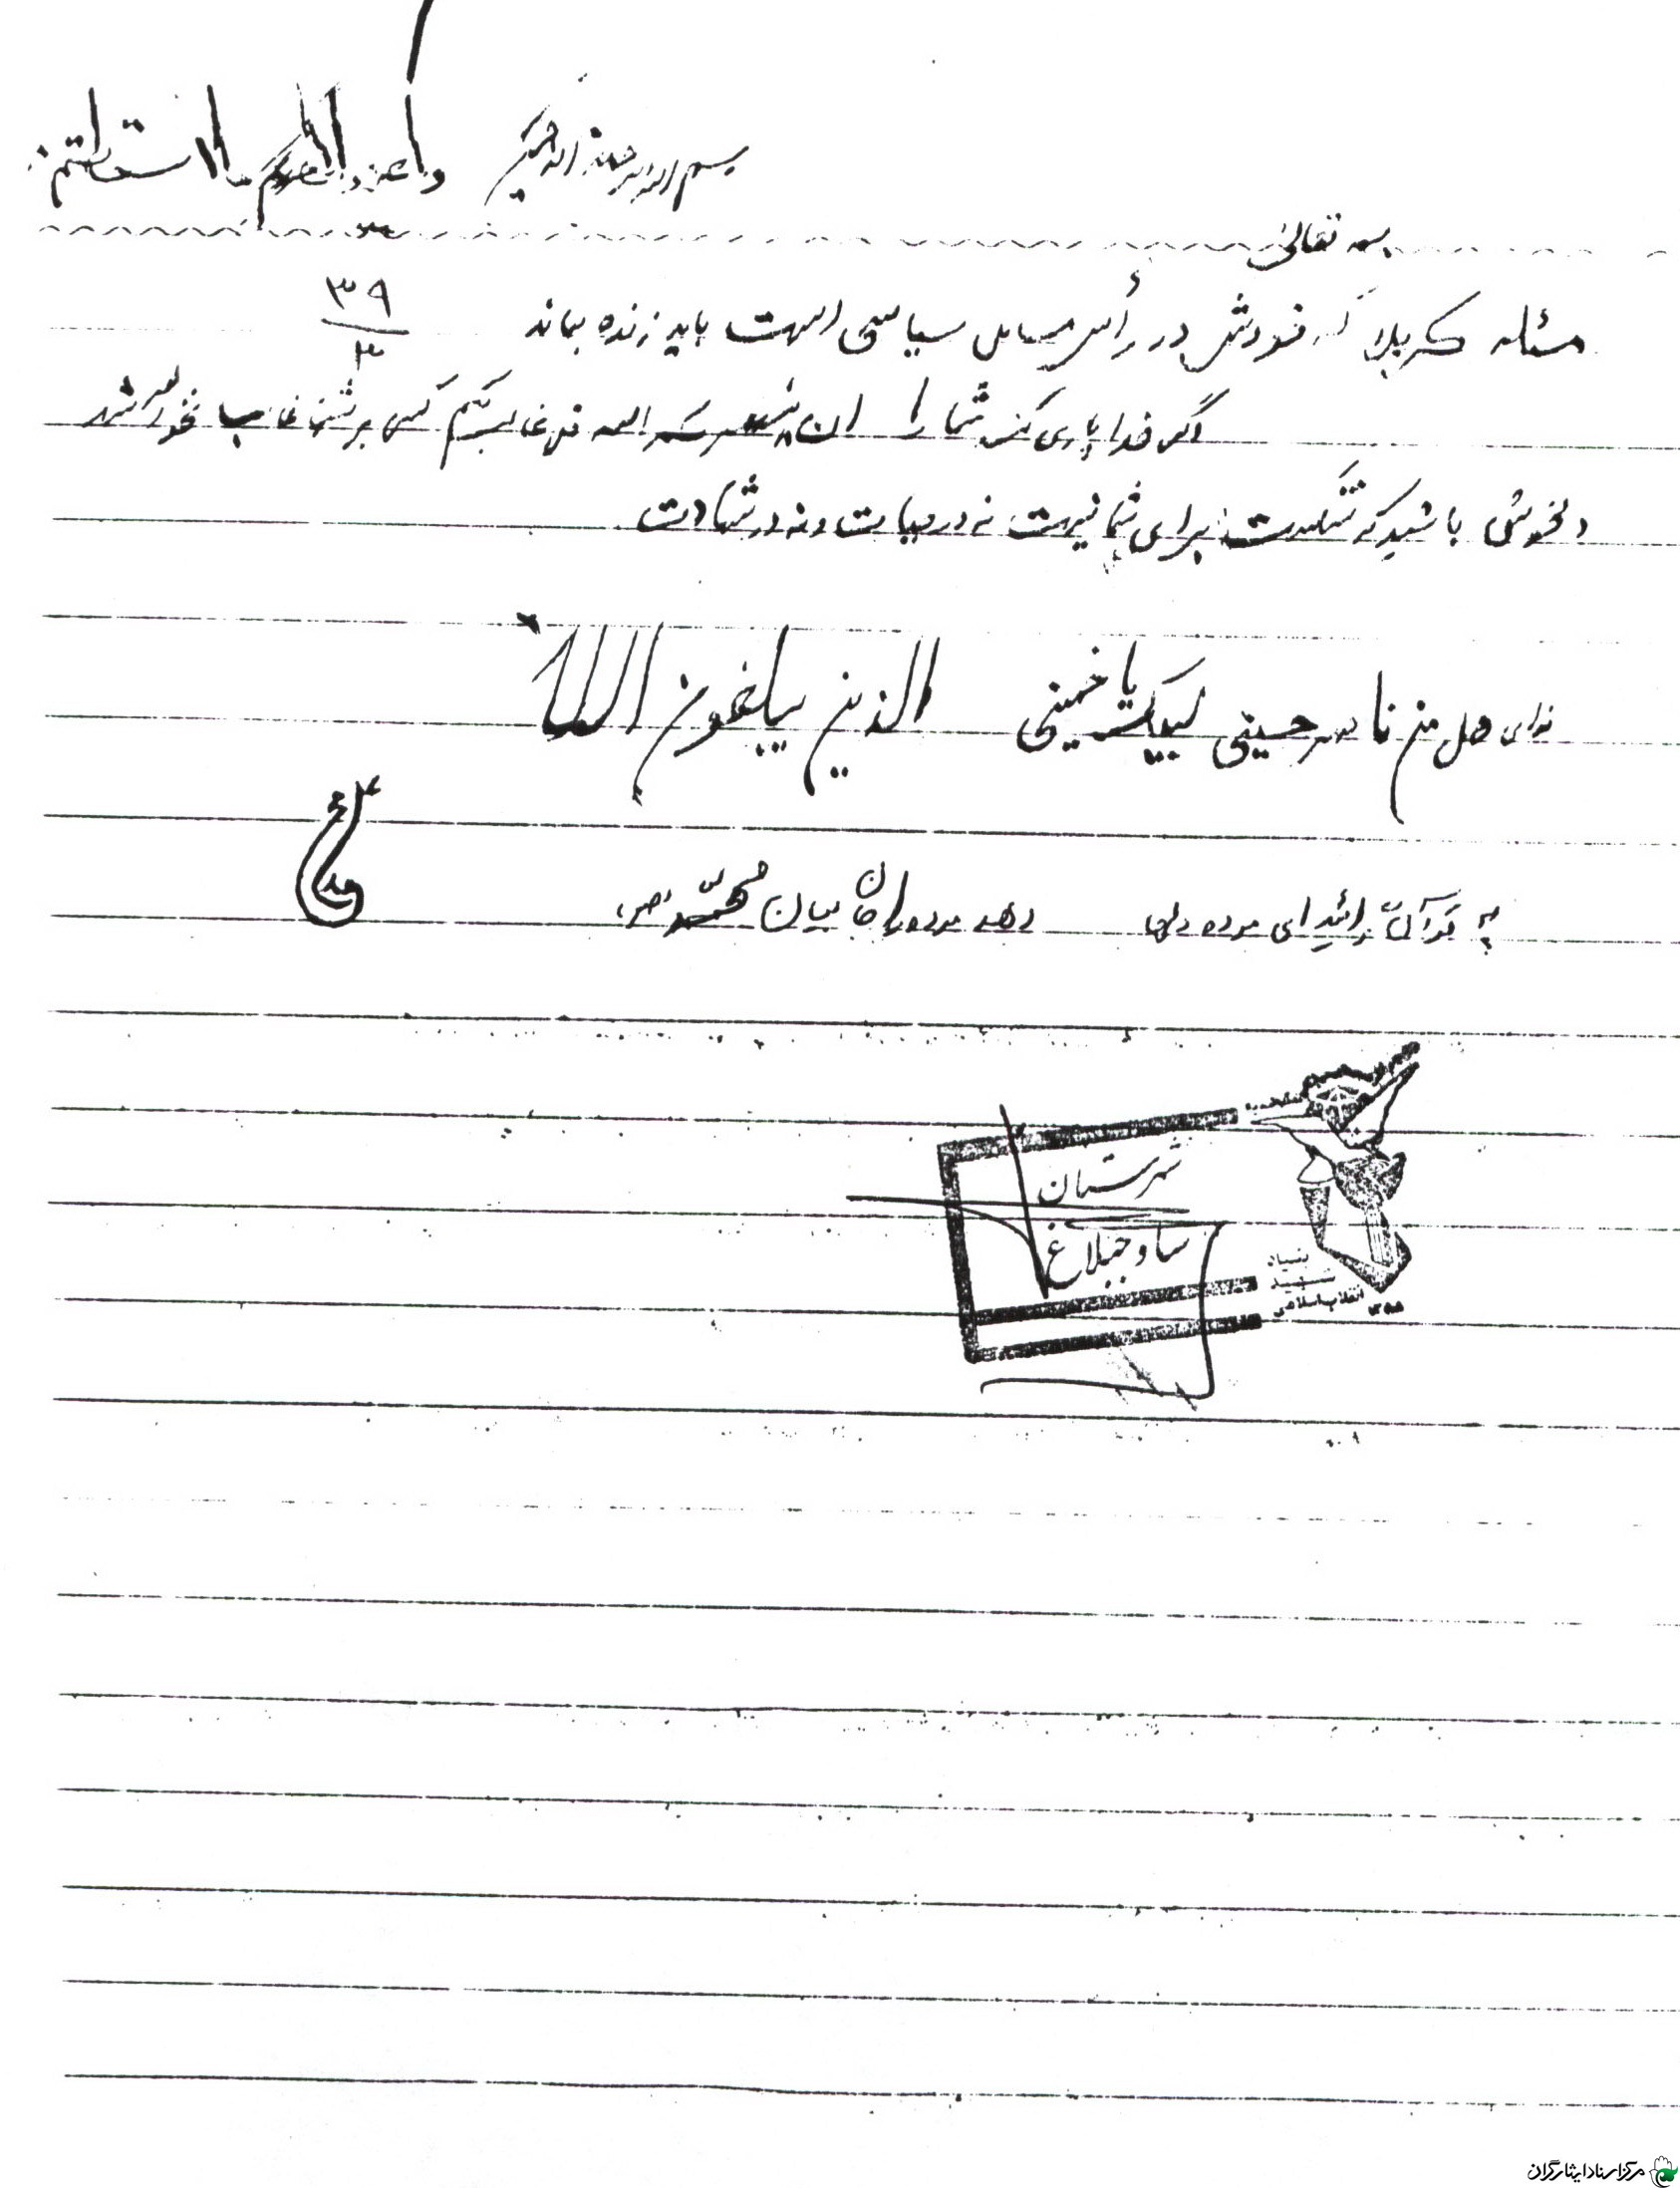 بسم الله الرحمن الرحیم واعدوا لهم ما استطعتم
بسمه تعالی
مسئله کربلا که خودش در رأس مسایل سیاسی است باید زنده بماند
۳۹
۳
اگر خدا یاری کند شما را ان ینصرکم الله فلا غالب لکم کسی بر شما غالب نخواهد شد
دلخوش باشید که شکست برای شما نیست نه در حیات و نه در شهادت
ندای هل من ناصر حسینی لبیک یا خمینی الذین یبلغون
به قرآن ای مرده دلها دهد مرده را جان بیان محمد
شهرستان
ساوجبلاغ
بنیاد
شهید
انقلاب اسلامی
مرکز اسناد ایثارگران